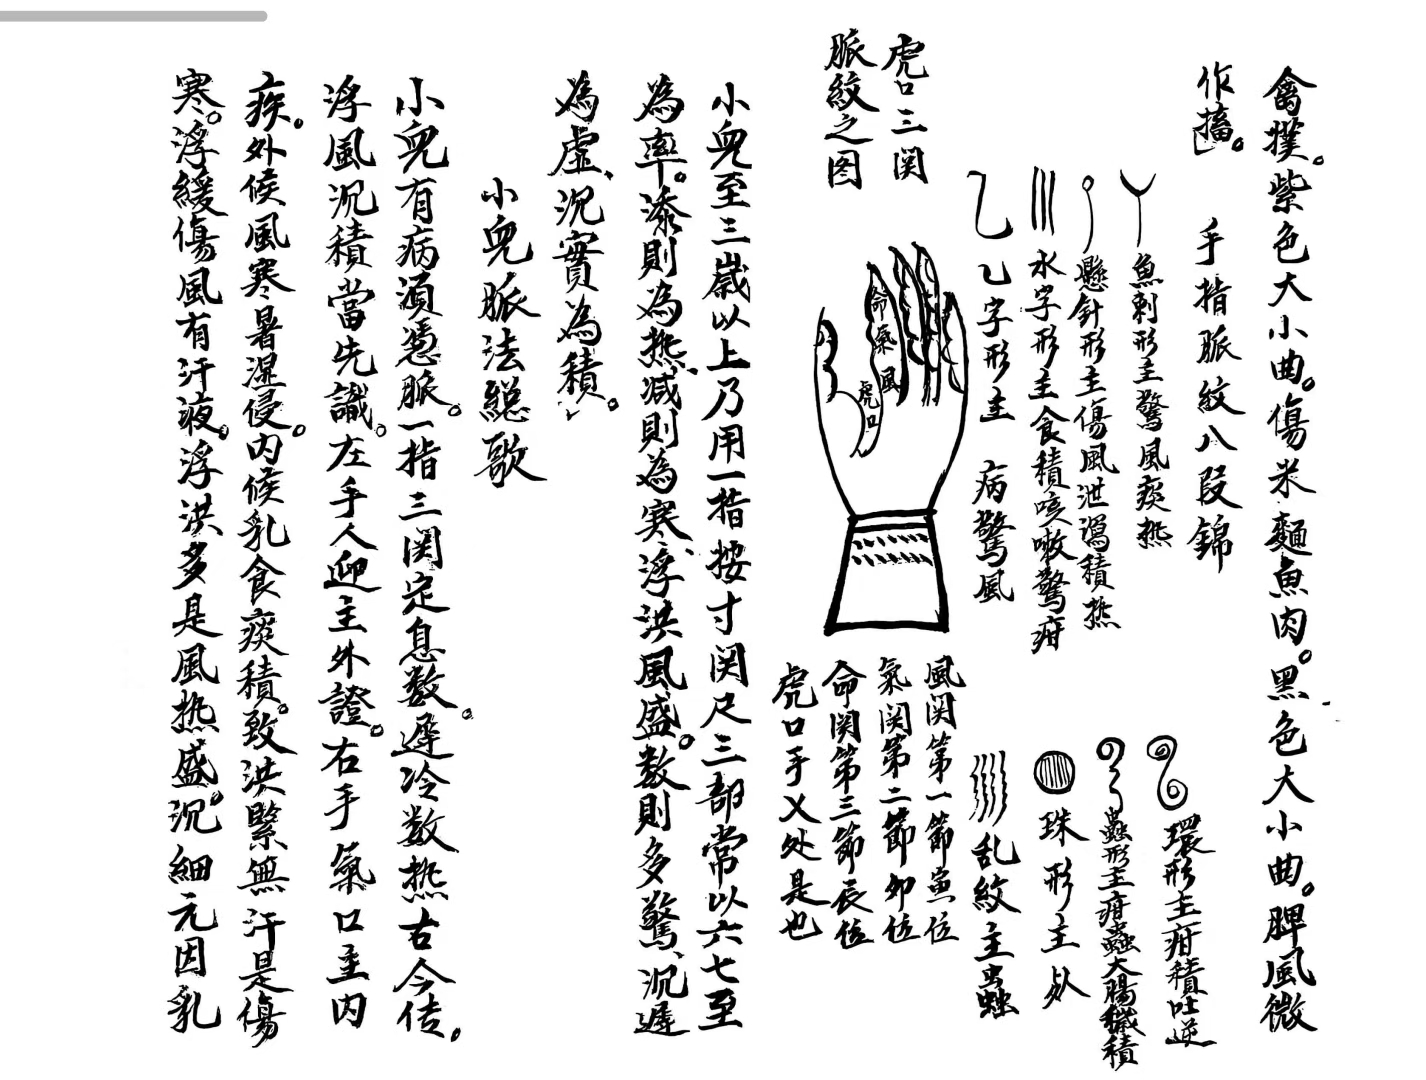 禽撲。紫色大小曲。傷米麵魚肉。黑色大小曲。脾風微
作搐。
手指脈紋八段錦
魚刺形主驚風痰热
懸針形主傷風泄瀉積热
水字形主食積咳嗽驚疳
乙字形主 病驚風
環形主疳積吐逆
蟲形主疳蟲大腸穢積
珠形主死
乱紋主虫蛔
虎口三関
脈紋之图
命
氣
風
虎口
風関第一節寅位
氣関第二節卯位
命関第三節辰位
虎口手乂处是也
小兒至三歲以上乃用一指按寸関尺三部常以六七至
為率。添則為热、減則為寒、浮洪風盛。数則多驚、沉遲
為虛、沉實為積。
小兒脈法總歌
小兒有病須憑脈。一指三関定息数。遲冷数热古今传。
浮風沉積當先識。左手人迎主外證。右手氣口主内
疾。外候風寒暑濕侵。内候乳食痰積。致洪緊無汗是傷
寒。浮緩傷風有汗液。浮洪多是風热盛。沉細元因乳